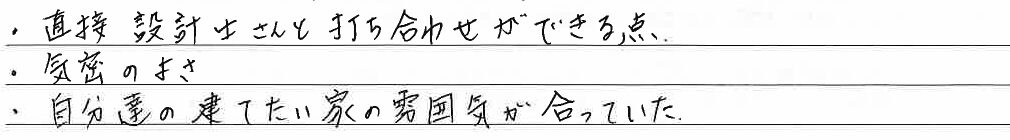 ・直接 設計士さんと打ち合わせができる点.
・気密のよさ
・自分達の建てたい家の雰囲気が合っていた.